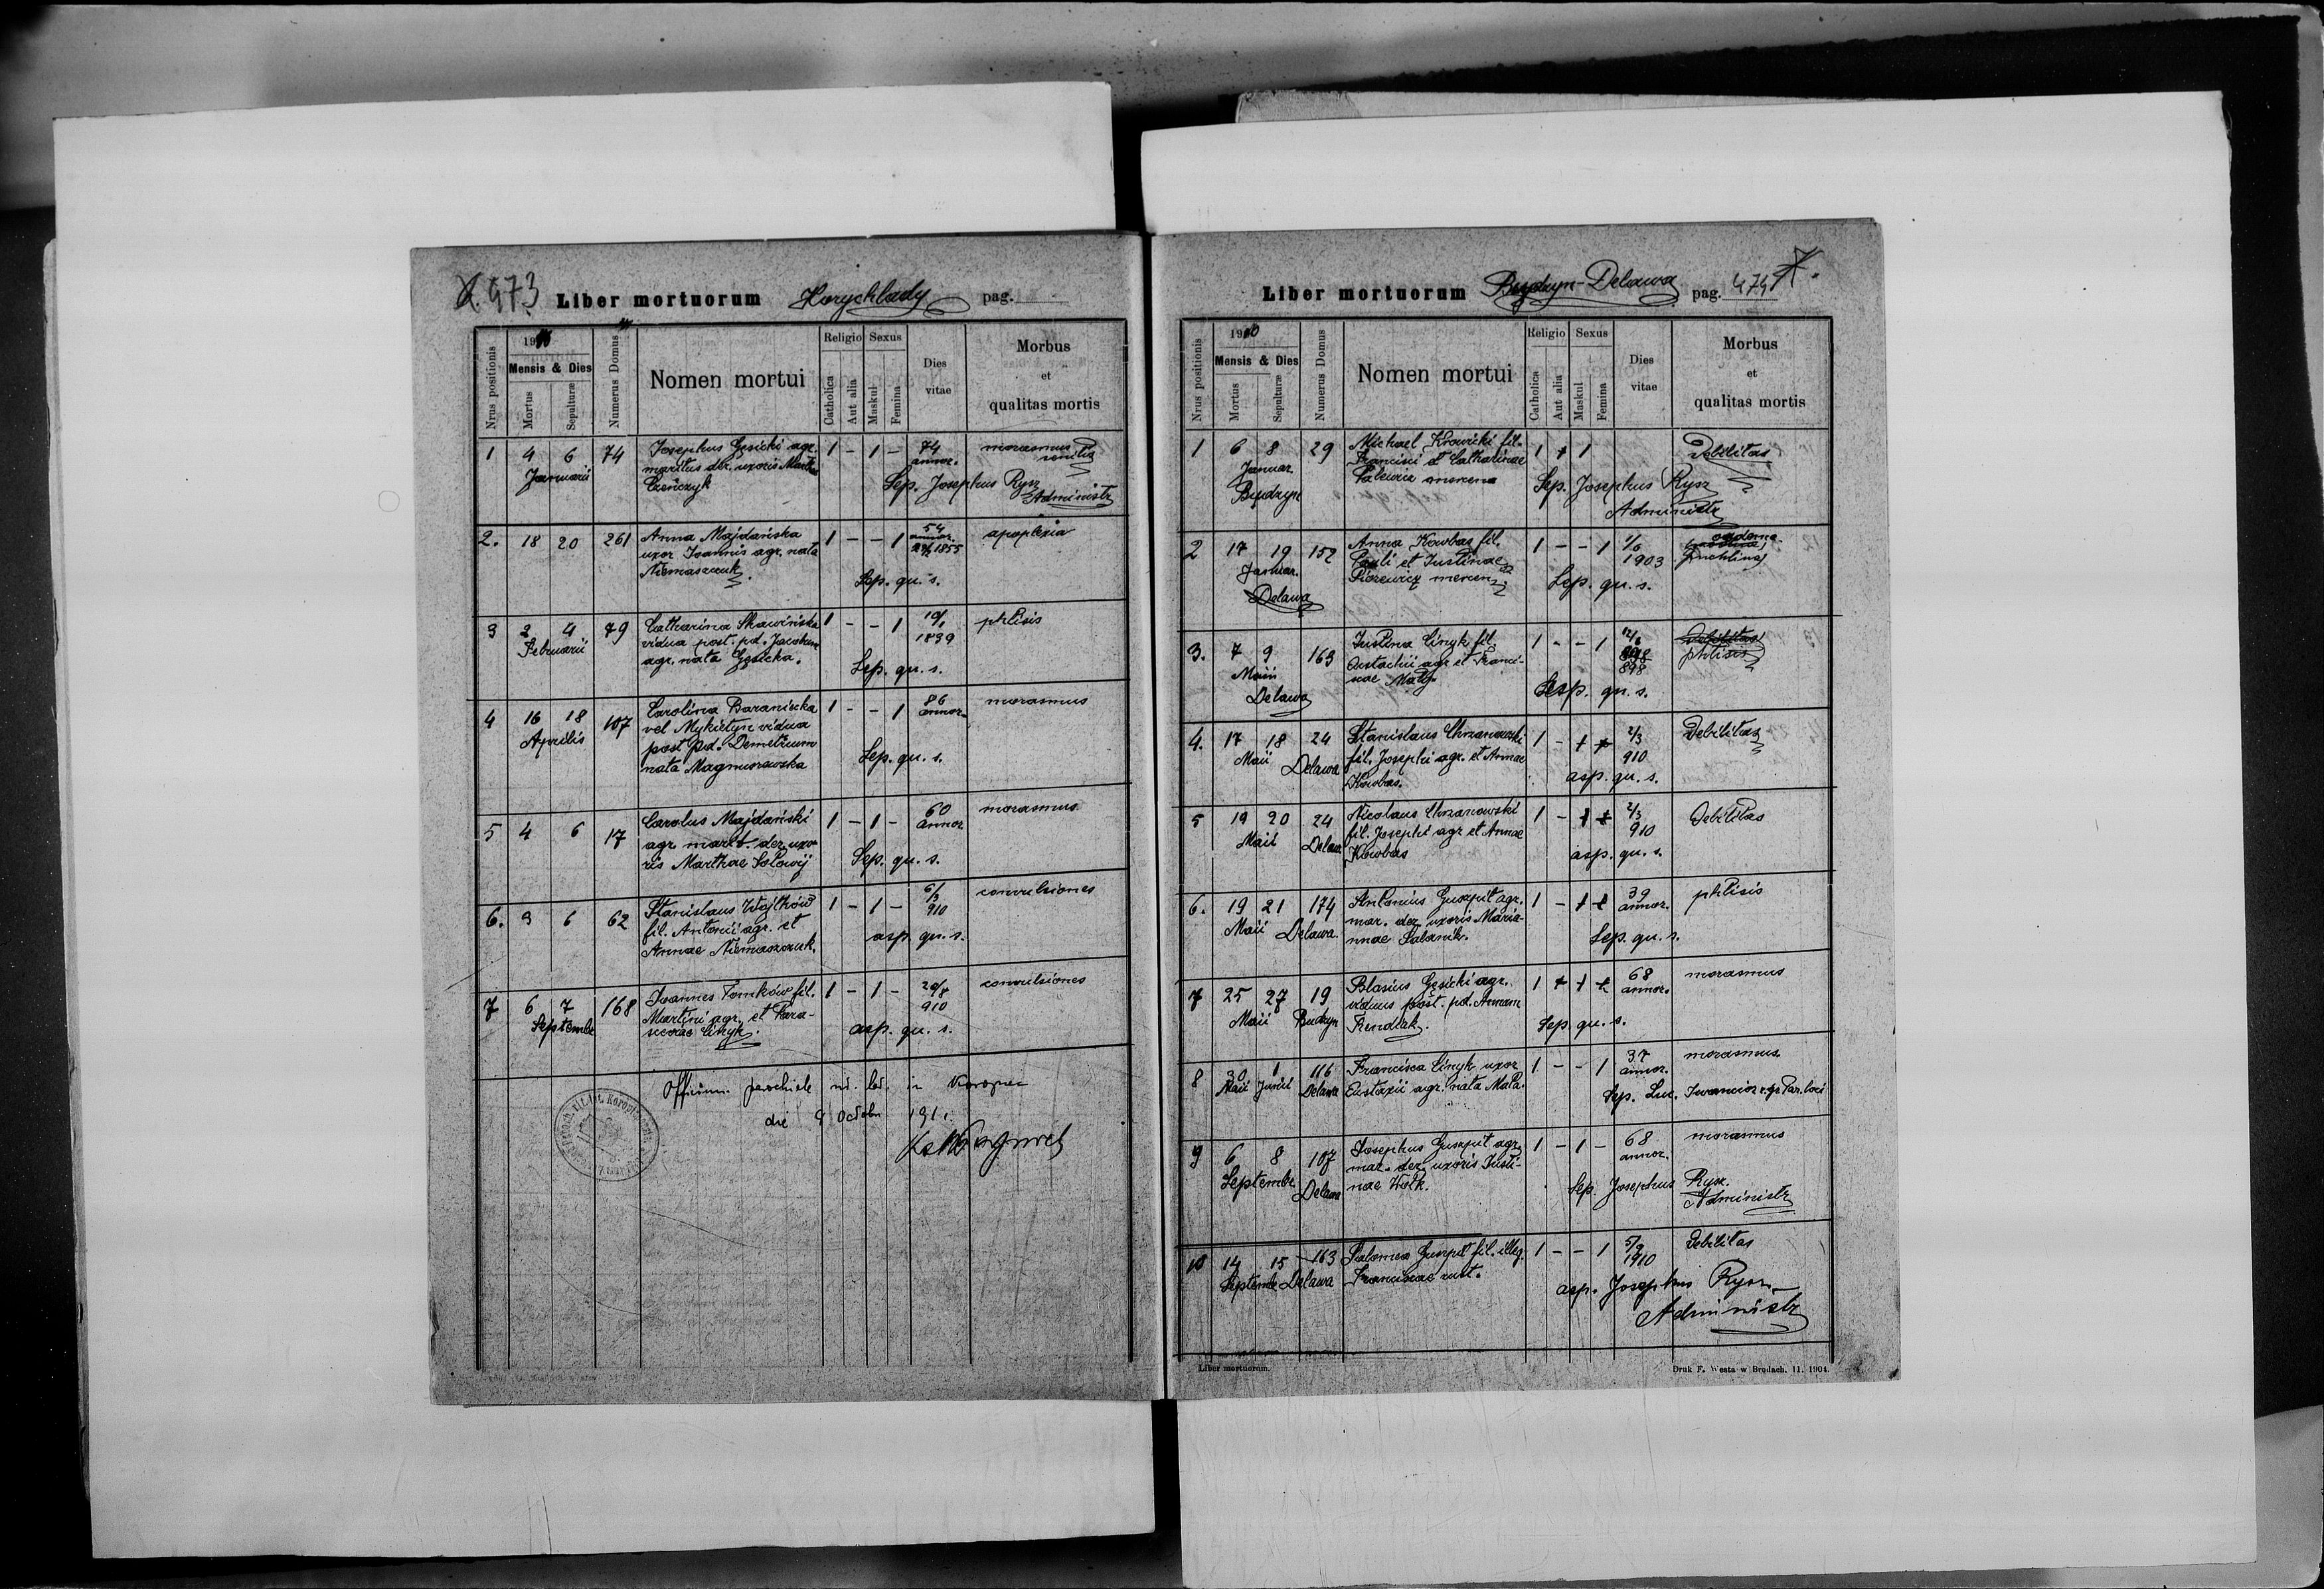 X. 473 Liber mortuorum Horychlady pag.
Nrus positionis
1910
Mensis & Dies
Mortus
Sepulturæ
Numerus Domus
Nomen mortui
Religio
Catholica
Aut alia
Sexus
Maskul
Femina
Dies vitae
Morbus
et
qualitas mortis
1 4 6 74 Josephus Gęsicki agr. 1 - 1 - 74 annor. morasmus senilis
Januarii maritus der. uxoris Martha
Sep. Josephus Rysz
Administr
2. 18 20 261 Anna Majdańska 1 - - 1 54 annor. apoplexia
uxor Joannis agr. nata 1855
Niemaszczuk.
Sep. qu. s.
3 2 4 79 Catharina Skawińska 1 - - 1 19/1 1839 phtisis
Februarii vidua post. pd. Jacobum
agr. nata Gęsicka.
Sep. qu. s.
4 16 18 107 Carolina Baraniecka 1 - - 1 86 annor. morasmus
Aprilis vel Mykietyn vidua
post pd. Demetrium
nata Magmurowska
Sep. qu. s.
5 4 6 17 Carolus Majdański 1 - 1 - 60 annor. morasmus
agr. marit. der. uxo-
ris Marthae Sołowij
Sep. qu. s.
6. 3 6 62 Stanislaus Wojtków 1 - 1 - 6/3 910 convulsiones
fil. Antonii agr. et
Annae Niemaszczuk.
asp. qu. s.
7 6 7 168 Joannes Tomków fil. 1 - 1 - 29/8 910 convulsiones
Septembr Martini agr. et Para-
scevae Cinyk.
asp. qu. s.
Officium paroch. rit. lat. in Koropiec
die 9 Octobr 1911
Liber mortuorum Budzyn-Delawa pag. 474
Nrus positionis
1910
Mensis & Dies
Mortus
Sepulturæ
Numerus Domus
Nomen mortui
Religio
Catholica
Aut alia
Sexus
Maskul
Femina
Dies vitae
Morbus
et
qualitas mortis
1 6 8 29 Michael Krowicki fil. 1 + 1 Debilitas
Januar. Francisci et Catharinae
Budzyn
Sep. Josephus Rysz
Administr
2 17 19 152 Anna Kowbas fil. 1 - - 1 1/6 1903
Januar. Pauli et Justinae
Delawa
Sep. qu. s.
3. 7 9 163 Justina Cinyk fil. 1 - - 1 12/6 898 phtisis
Maii Eustachii agr et Franci-
Delawa nae Mały
Sep. qu. s.
4. 17 18 24 Stanislaus Chmanowski 1 - 1 2/3 910 Debilitas
Maii Delawa fil. Josephi agr. et Annae
Kowbas.
asp. qu. s.
5 19 20 24 Nicolaus Chmanowski 1 - 1 2/3 910 Debilitas
Maii Delawa fil. Josephi agr et Annae
Kowbas
asp. qu. s.
6. 19 21 174 Antonius Guszpit agr. 1 - 1 39 annor. phtisis
Maii Delawa. mar. der. uxoris Maria-
nnae
Sep. qu. s.
7 25 27 19 Blasius Gęsicki agr. 1 + 1 68 annor. morasmus
Maii Budzyn viduus post. pd. Annam
Sep. qu. s.
8 30 1 116 Francisca Cinyk uxor 1 - - 1 37 annor. morasmus
Maii Junii Delawa Eustaxii agr. nata Mała.
Sep. Luc. Par. loci
9 6 8 107 Josephus Guszpit agr. 1 - 1 - 68 annor. morasmus
Septembr. Delawa mar. der. uxoris Justi-
nae Wołk.
Sep. Josephus Rysz.
Administr
10 14 15 163 Salomea Guszpit fil. illeg. 1 - - 1 5/9 1910 Debilitas
Septembr Delawa Franciscae rust.
asp. Josephus Rysz
Administr
Liber mortuorum.
Druk F. Westa w Brodach. 11. 1904.